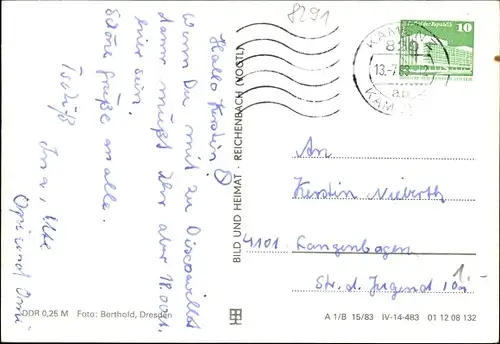 8291
Hallo Kerstin!
Wenn Du mit zu Discowillst
dann mußt Du aber 18.00 h.
hier sein.
Schöne Grüße an alle.
Tschüß
Ina, Ute
Opi und Omi
BILD UND HEIMAT · REICHENBACH (VOGTL)
KAMENZ
829
13.-7.8
KAMENZ
10
An
Kerstin Nieberth
4101 Langenbogen
Str. d. Jugend 10
1.-
DDR 0,25 M Foto: Berthold, Dresden
A 1/B 15/83 IV-14-483 01 12 08 132